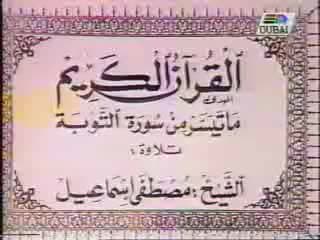 DUBAI
القرآن الكريم
ما تيسر من سورة التوبة
تلاوة :
الشيخ : مصطفى اسماعيل